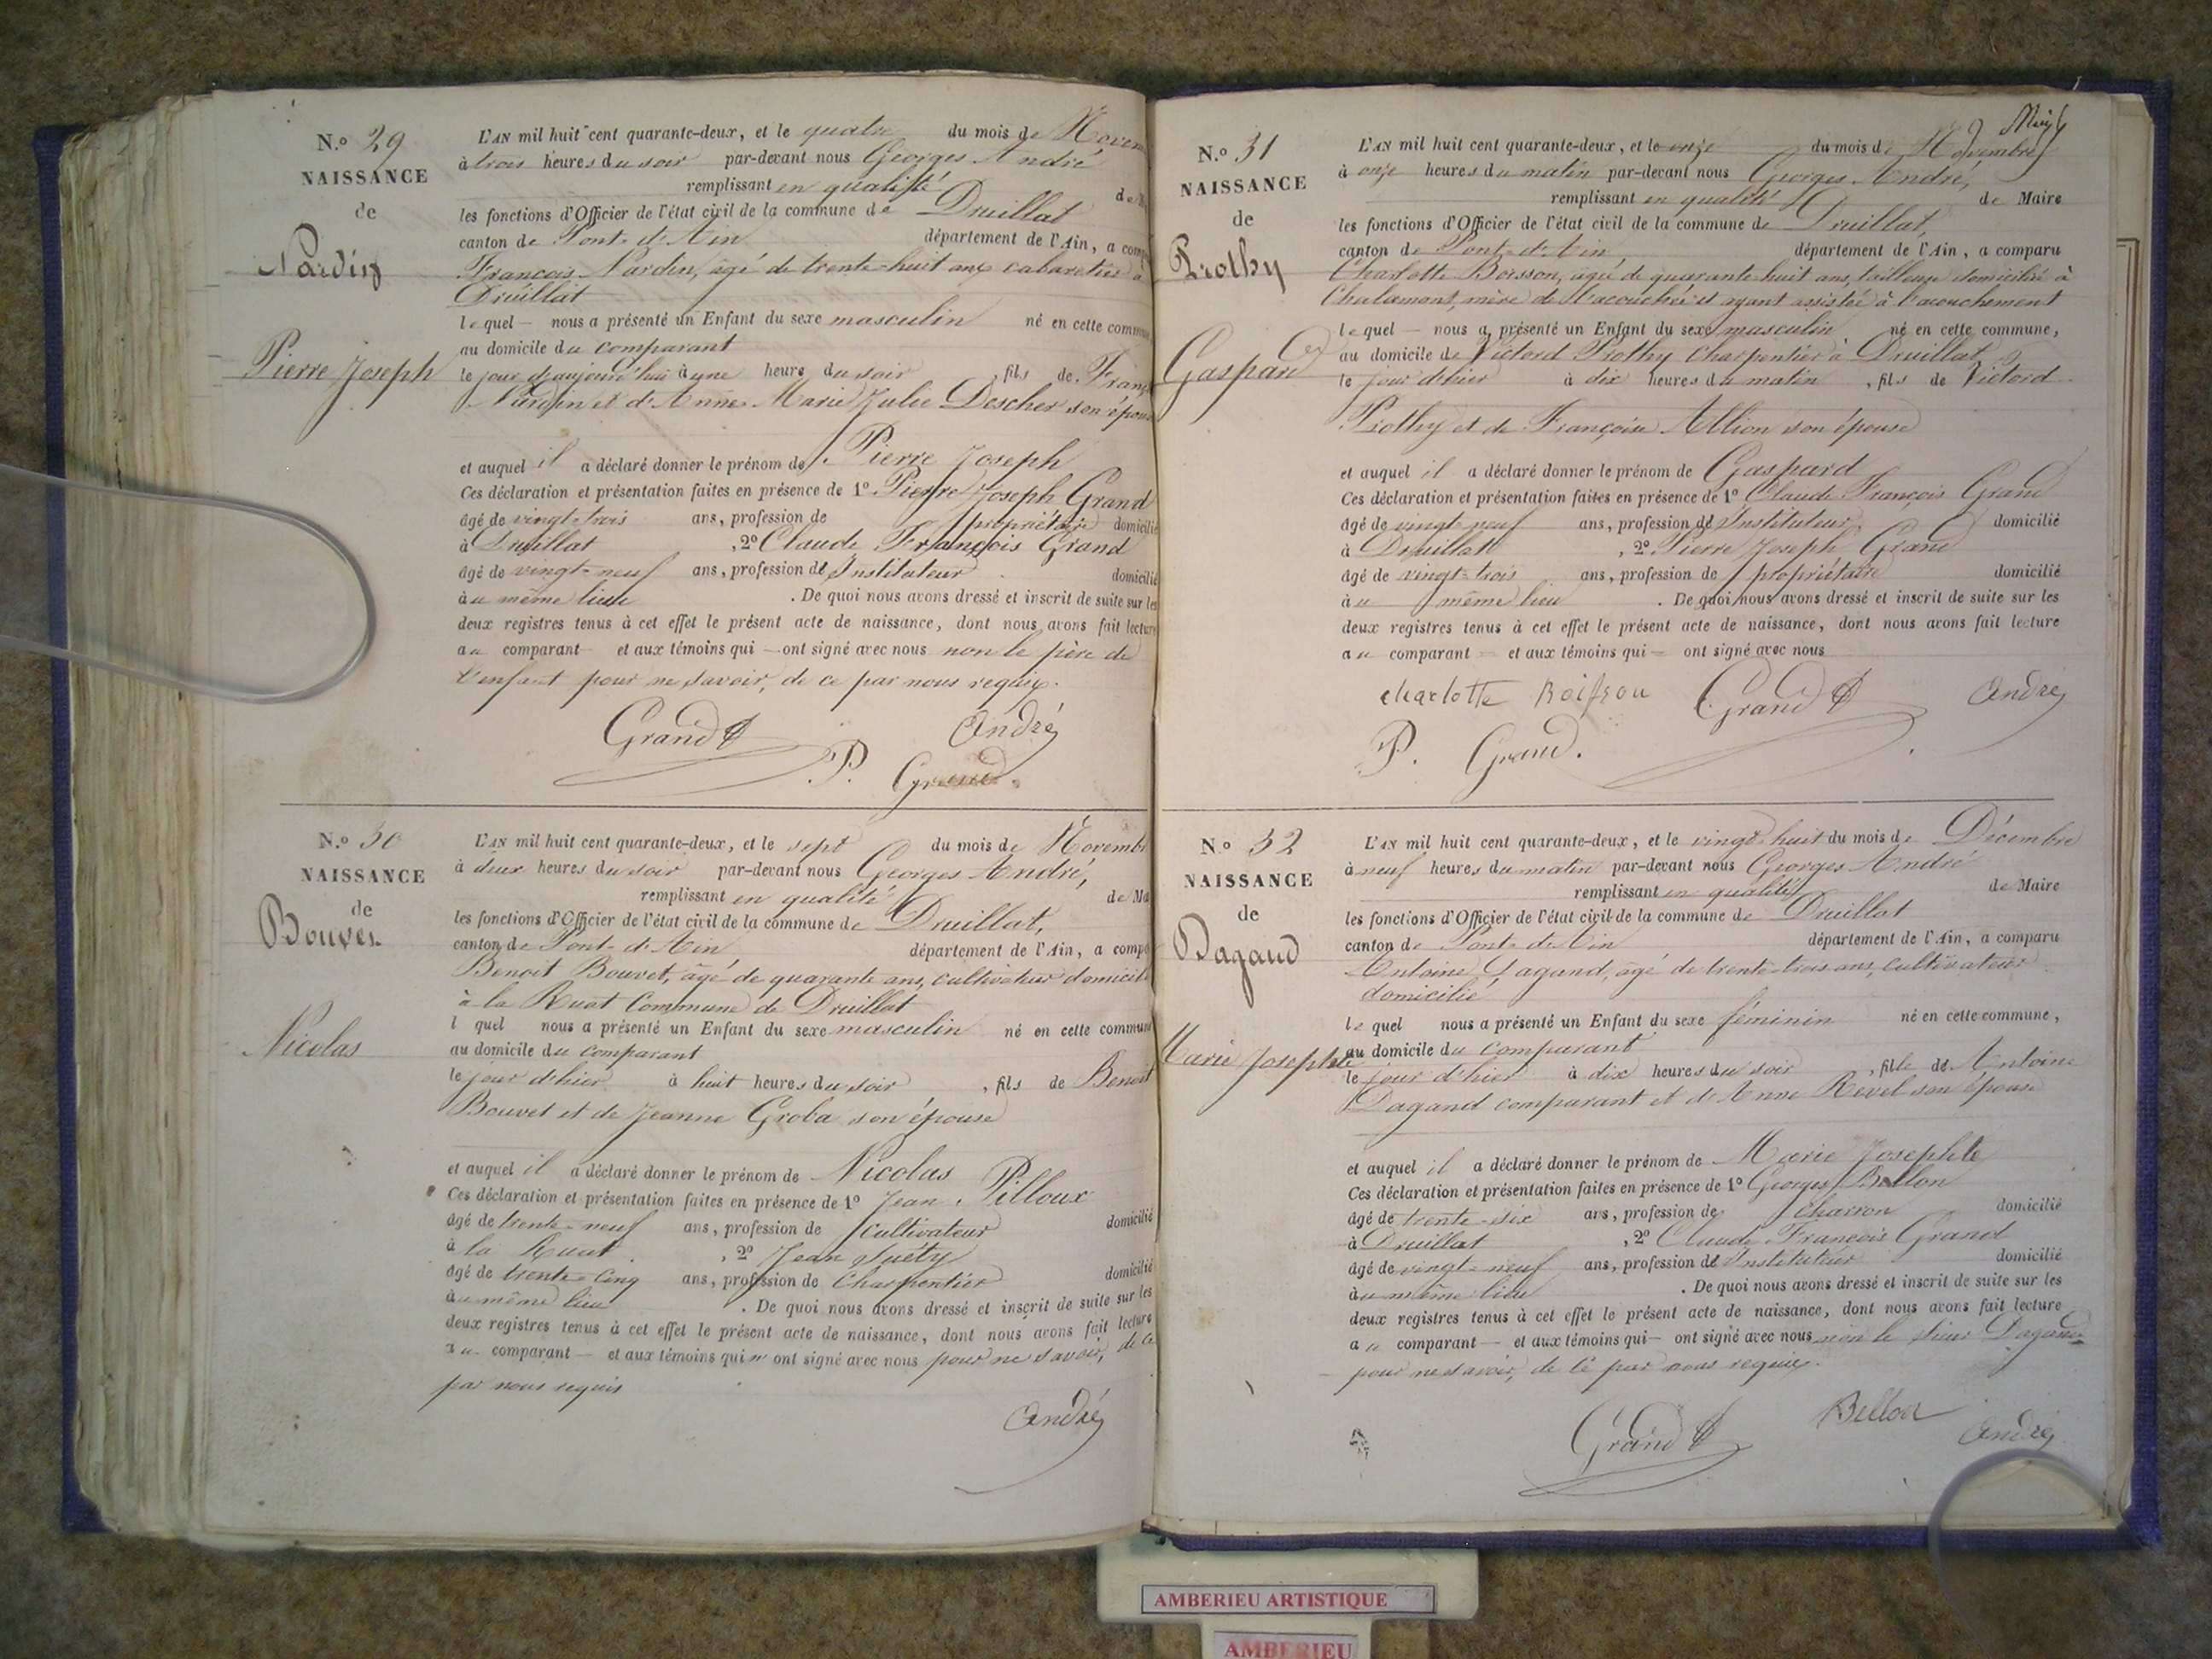 N.º 29
NAISSANCE
de
Nardin
Pierre Joseph
L'AN mil huit cent quarante-deux, et le quatre du mois de Novem
à trois heures du soir par-devant nous Georges André
remplissant en qualité de
les fonctions d'Officier de l'état civil de la commune de Druillat
canton de Pont-d'Ain département de l'Ain, a comp
François Nardin, âgé de trente-huit ans cabaretier à
Druillat
lequel — nous a présenté un Enfant du sexe masculin né en cette commu
au domicile du comparant
le jour d'aujourd'hui à une heure du soir, fils de Franç
Nardin et d'Anne Marie Julie Descher son épous
et auquel il a déclaré donner le prénom de Pierre Joseph
Ces déclaration et présentation faites en présence de 1º Pierre Joseph Grand
âgé de vingt-trois ans, profession de propriétaire domicilié
à Druillat, 2º Claude François Grand
âgé de vingt-neuf ans, profession d'Instituteur domicilié
au même lieu. De quoi nous avons dressé et inscrit de suite sur les
deux registres tenus à cet effet le présent acte de naissance, dont nous avons fait lecture
au comparant et aux témoins qui — ont signé avec nous non le père de
l'enfant pour ne savoir, de ce par nous requis.
Grand André
P. Grand.
N.º 30
NAISSANCE
de
Bouvet
Nicolas
L'AN mil huit cent quarante-deux, et le sept du mois de Novemb
à deux heures du soir par-devant nous Georges André,
remplissant en qualité de Ma
les fonctions d'Officier de l'état civil de la commune de Druillat,
canton de Pont-d'Ain département de l'Ain, a comp
Benoit Bouvet, âgé de quarante ans, cultivateur domicil
à la Ruat Commune de Druillat
l quel nous a présenté un Enfant du sexe masculin né en cette commun
au domicile du comparant
le jour d'hier à huit heures du soir, fils de Benoit
Bouvet et de Jeanne Groba son épouse
et auquel il a déclaré donner le prénom de Nicolas
Ces déclaration et présentation faites en présence de 1º Jean Pilloux
âgé de trente-neuf ans, profession de cultivateur domicilié
à la Ruat, 2º Jean
âgé de trente-cinq ans, profession de Charpentier domicilié
au même lieu. De quoi nous avons dressé et inscrit de suite sur les
deux registres tenus à cet effet le présent acte de naissance, dont nous avons fait lecture
au comparant — et aux témoins qui n'ont signé avec nous pour ne savoir, de ce
par nous requis
André
N.º 31
NAISSANCE
de
Prothy
Gaspard
L'AN mil huit cent quarante-deux, et le onze du mois de Novembre
à onze heures du matin par-devant nous Georges André,
remplissant en qualité de Maire
les fonctions d'Officier de l'état civil de la commune de Druillat,
canton de Pont-d'Ain département de l'Ain, a comparu
Charlotte Boisson, âgée de quarante-huit ans, tailleuse domiciliée à
Chalamont, mère de l'accouchée et ayant assistée à l'acouchement
lequel — nous a présenté un Enfant du sexe masculin né en cette commune,
au domicile de Victord Prothy Charpentier à Druillat
le jour d'hier à dix heures du matin, fils de Victord
Prothy et de Françoise Allion son épouse
et auquel il a déclaré donner le prénom de Gaspard
Ces déclaration et présentation faites en présence de 1º Claude François Grand
âgé de vingt-neuf ans, profession d'Instituteur domicilié
à Druillat, 2º Pierre Joseph Grand
âgé de vingt-trois ans, profession de propriétaire domicilié
au même lieu. De quoi nous avons dressé et inscrit de suite sur les
deux registres tenus à cet effet le présent acte de naissance, dont nous avons fait lecture
au comparant — et aux témoins qui — ont signé avec nous
charlotte Boisson Grand André
P. Grand.
N.º 32
NAISSANCE
de
Dagand
Marie Josephte
L'AN mil huit cent quarante-deux, et le vingt-huit du mois de Décembre
à neuf heures du matin par-devant nous Georges André
remplissant en qualité de Maire
les fonctions d'Officier de l'état civil de la commune de Druillat
canton de Pont-de-l'Ain département de l'Ain, a comparu
Antoine Dagand, âgé de trente-trois ans, cultivateur
domicilié
lequel nous a présenté un Enfant du sexe féminin né en cette commune,
au domicile du comparant
le jour d'hier à dix heures du soir, fille de Antoine
Dagand comparant et d'Anne Revel son épouse
et auquel il a déclaré donner le prénom de Marie Josephte
Ces déclaration et présentation faites en présence de 1º Georges Bellon
âgé de trente-six ans, profession de charron domicilié
à Druillat, 2º Claude François Grand
âgé de vingt-neuf ans, profession d'Instituteur domicilié
au même lieu. De quoi nous avons dressé et inscrit de suite sur les
deux registres tenus à cet effet le présent acte de naissance, dont nous avons fait lecture
au comparant — et aux témoins qui — ont signé avec nous non le sieur Dagand
pour ne savoir, de ce par nous requis.
Grand Bellon André
AMBERIEU ARTISTIQUE
AMBERIEU